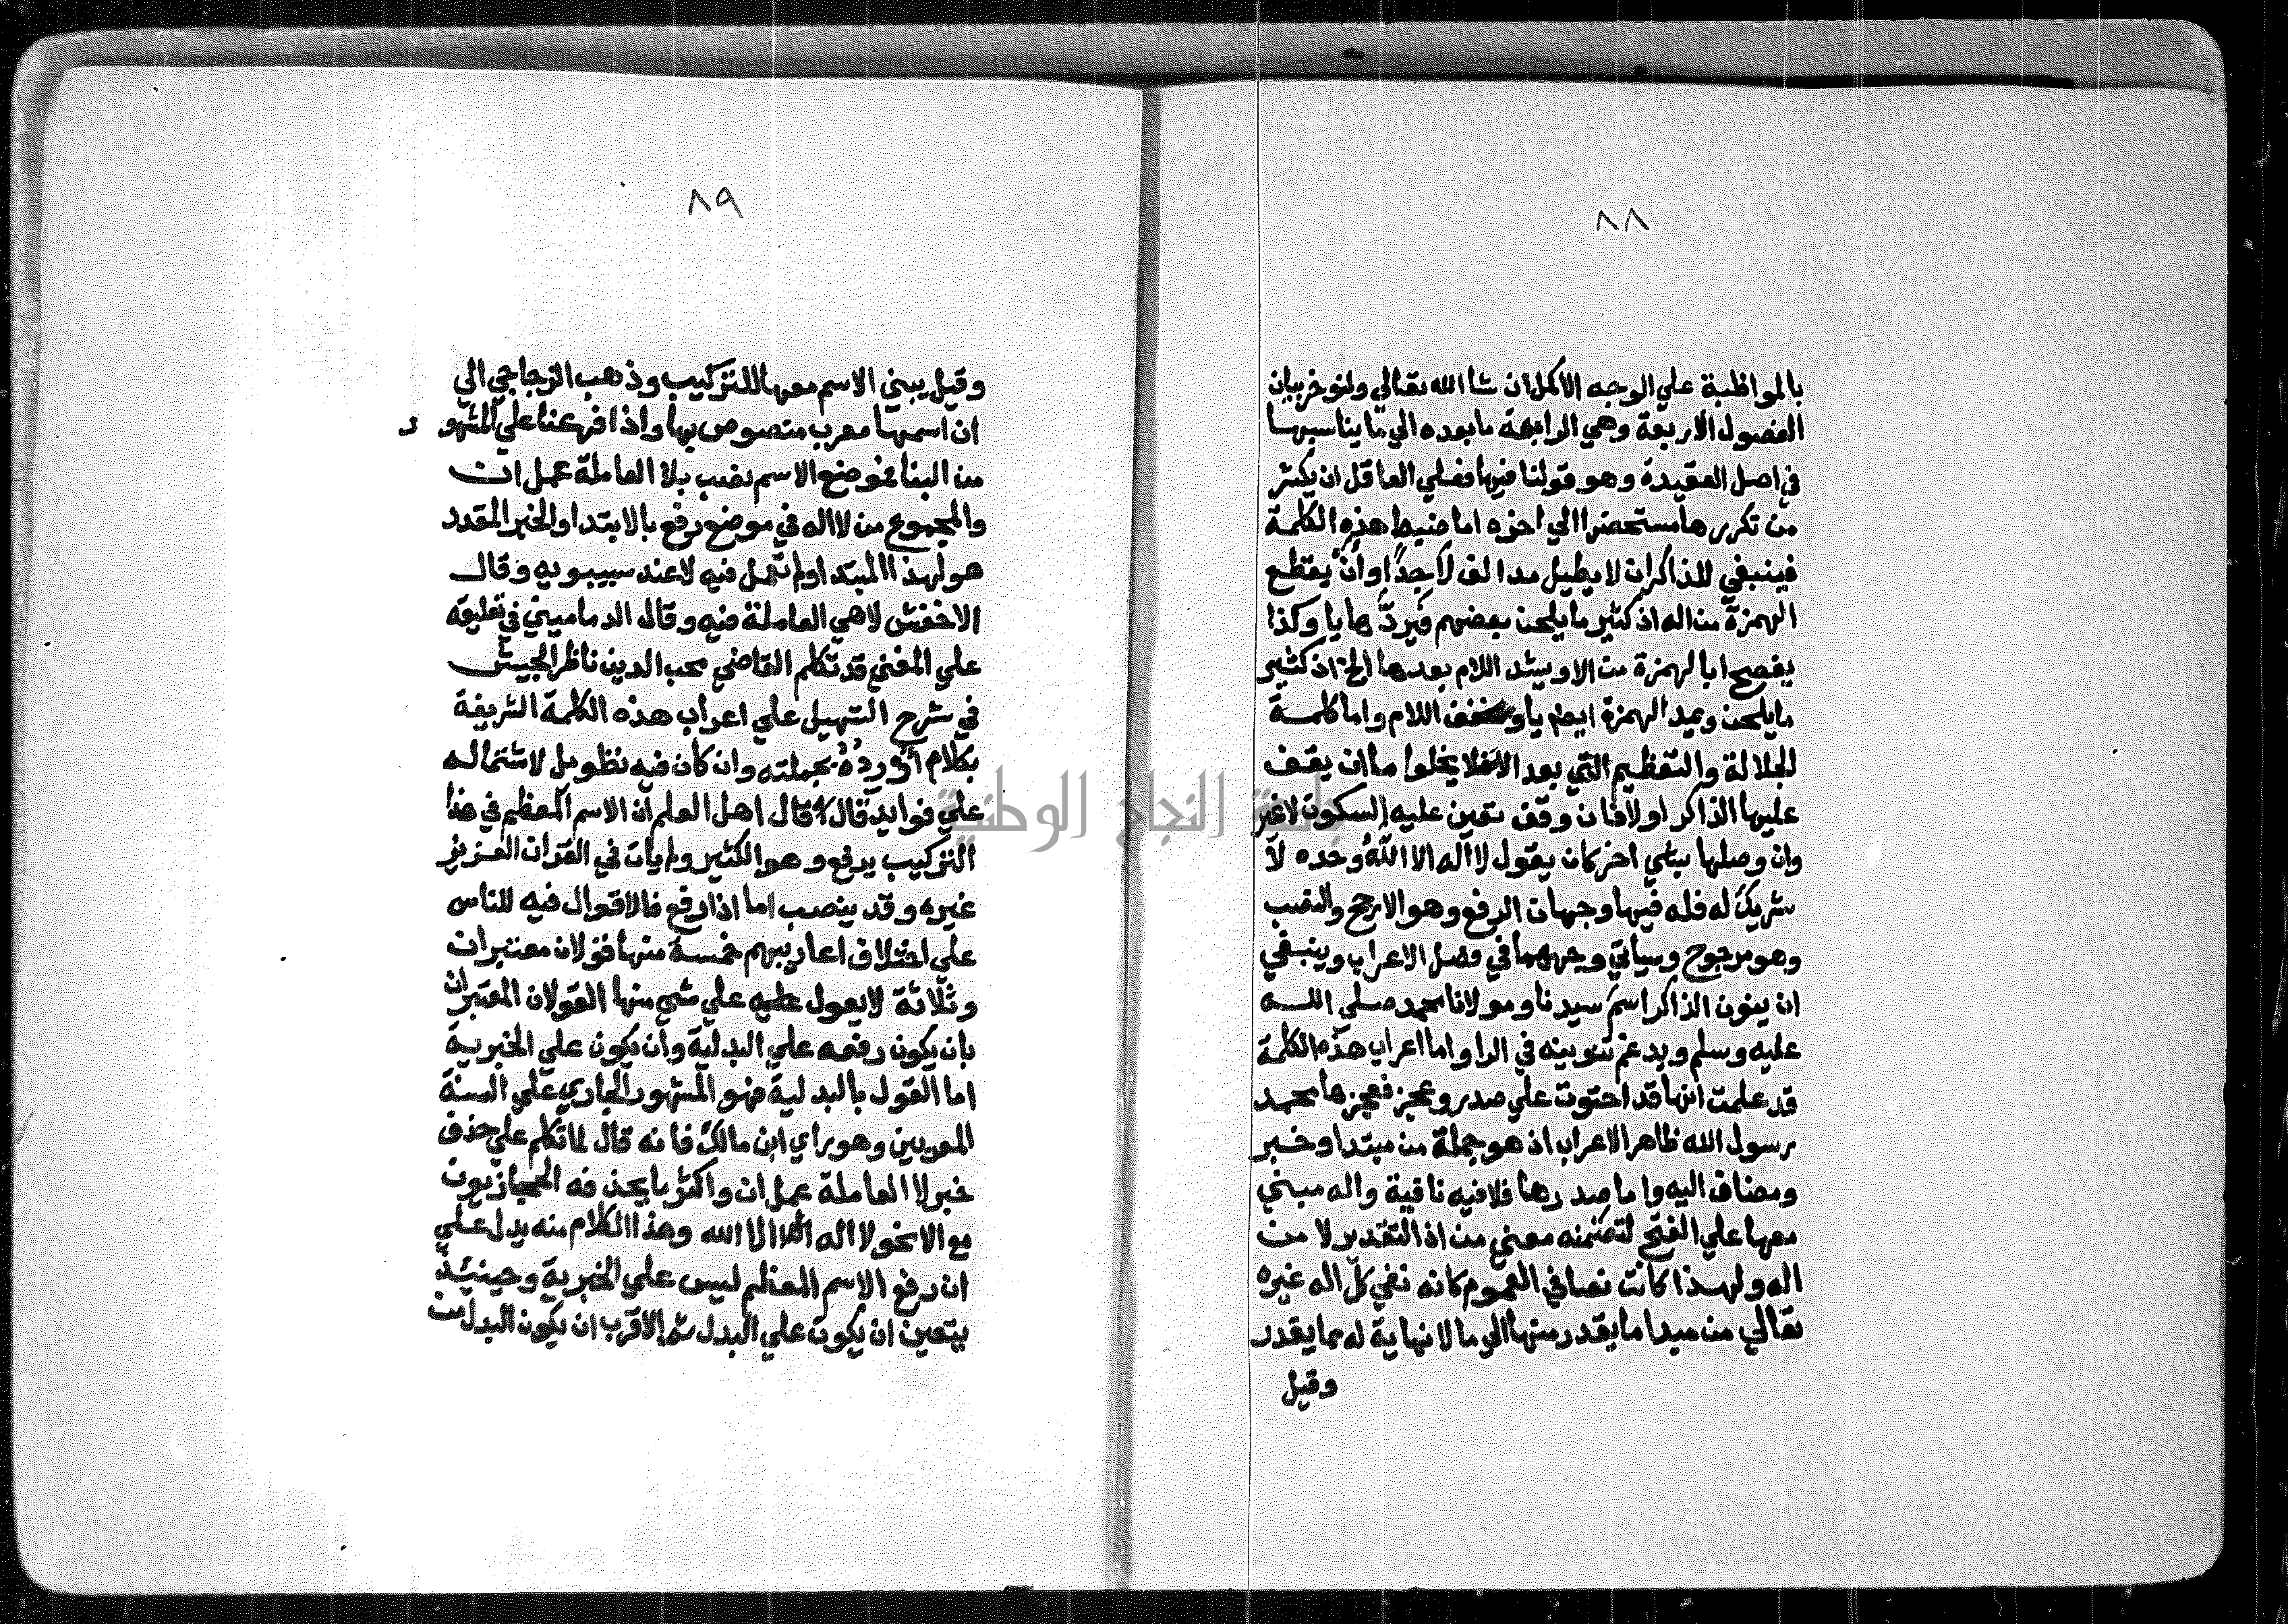 ٨٨
بالمواظبة علي الوجه الاكمل ان شا الله تعالي ولنوخر بيان
الفصول الاربعة وهي الرابعة ما بعده الي ما يناسبها
في اصل العقيدة وهو قولنا فيها فعلي العاقل ان يكثر
من تكررها مستحضرا الي اخره اما ضبط هذه الكلمة
فينبغي للذاكر ان لا يطيل مد الف لا جدًا وأن يقطع
الهمزة من اله اذ كثير ما يلحن بعضهم فيردّها يا وكذا
يفصح ابا لهمزة من الا ويشد اللام بعدها الخ اذ كثير
ما يلحن ويبد الهمزة ايضا يا ويخفف اللام واما كلمة
الجلالة والتعظيم التي بعد الا فلا يخلوا ما ان يقف
عليها الذاكر اولا فان وقف تعين عليه السكون لا غير
وان وصلها بشي اخر كان يقول لا اله الا اللهُ وحده لا
شريك له فله فيها وجهان الرفع وهو الارجح والنصب
وهو مرجوح وسياتي وجههما في فصل الاعراب وينبغي
ان ينون الذاكر اسم سيدنا ومولانا محمد صلي اللـه
عليه وسلم ويدغم تنوينه في الرا واما اعراب هذه الكلمة
قد علمت انها قد احتوت علي صدر وعجز فعجزها محمد
رسول الله ظاهر الاعراب اذ هو جملة من مبتدا وخبر
ومضاف اليه واما صدرها فلا فيه نافية واله مبني
معها علي الفتح لتضمنه معني من اذ التقدير لا من
اله ولهذا كانت نصا في العموم كانه نفي كل اله غيره
تعالي من مبدا ما يقدر منها الي ما لا نهاية له مما يقدر
وقيل
٨٩
وقيل يبني الاسم معها للتركيب وذهب الزجاجي الي
ان اسمها معرب منصوص بها واذا فرعنا علي المشهور
من البنا فموضع الاسم نصب بلا العاملة عمل ان
والمجموع من لا اله في موضع رفع بالابتدا والخبر المقدر
هو لهذا المبتدا ولم تعمل فيه لا عند سيبويه وقال
الاخفش لا هي العاملة فيه وقال الدماميني في تعليقه
علي المغني قد تكلم القاضي محب الدين ناظر الجيش
في شرح التسهيل علي اعراب هذه الكلمة الشريفة
بكلام اُوردُهُ بجملته وان كان فيه تطويل لاشتماله
علي فوايد قال قال اهل العلم ان الاسم المعظم في هذا
التركيب يرفع وهو الكثير ولم يات في القران العزيز
غيره وقد ينصب اما اذا رفع فالاقوال فيه للناس
علي اختلاف اعاريبهم خمسة منها قولان معتبران
وثلاثة لا يعول عليه علي شي منها القولان المعتبران
بان يكون رفعه علي البدلية وان يكون علي الخبرية
اما القول بالبدلية فهو المشهور الجاري علي السنة
المعربين وهو راي ابن مالك فانه قال لما تكلم علي حذف
خبر لا العاملة عمل ان واكثر ما يحذفه الحجازيون
مع الا نحو لا اله الا الله وهذا الكلام منه يدل علي
ان رفع الاسم المعظم ليس علي الخبرية وحينئذ
يتعين ان يكون علي البدل ثم الاقرب ان يكون البدل من
جامعة النجاح الوطنية